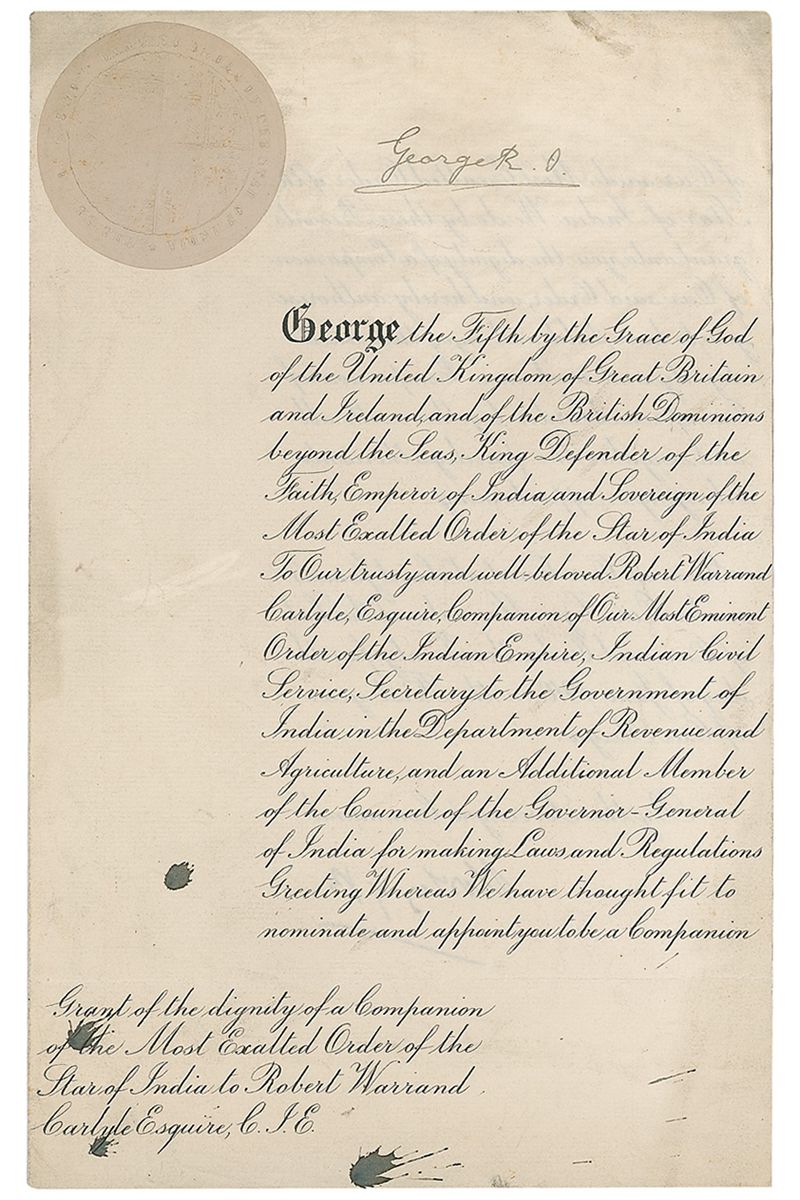 George R. I.
George the Fifth by the Grace of God
of the United Kingdom of Great Britain
and Ireland, and of the British Dominions
beyond the Seas, King Defender of the
Faith, Emperor of India, and Sovereign of the
Most Exalted Order of the Star of India
To Our trusty and well-beloved Robert Warrand
Carlyle, Esquire, Companion of Our Most Eminent
Order of the Indian Empire, Indian Civil
Service, Secretary to the Government of
India, in the Department of Revenue and
Agriculture, and an Additional Member
of the Council of the Governor-General
of India for making Laws and Regulations
Greeting Whereas We have thought fit to
nominate and appoint you to be a Companion
Grant of the dignity of a Companion
of the Most Exalted Order of the
Star of India to Robert Warrand
Carlyle Esquire, C.I.E.